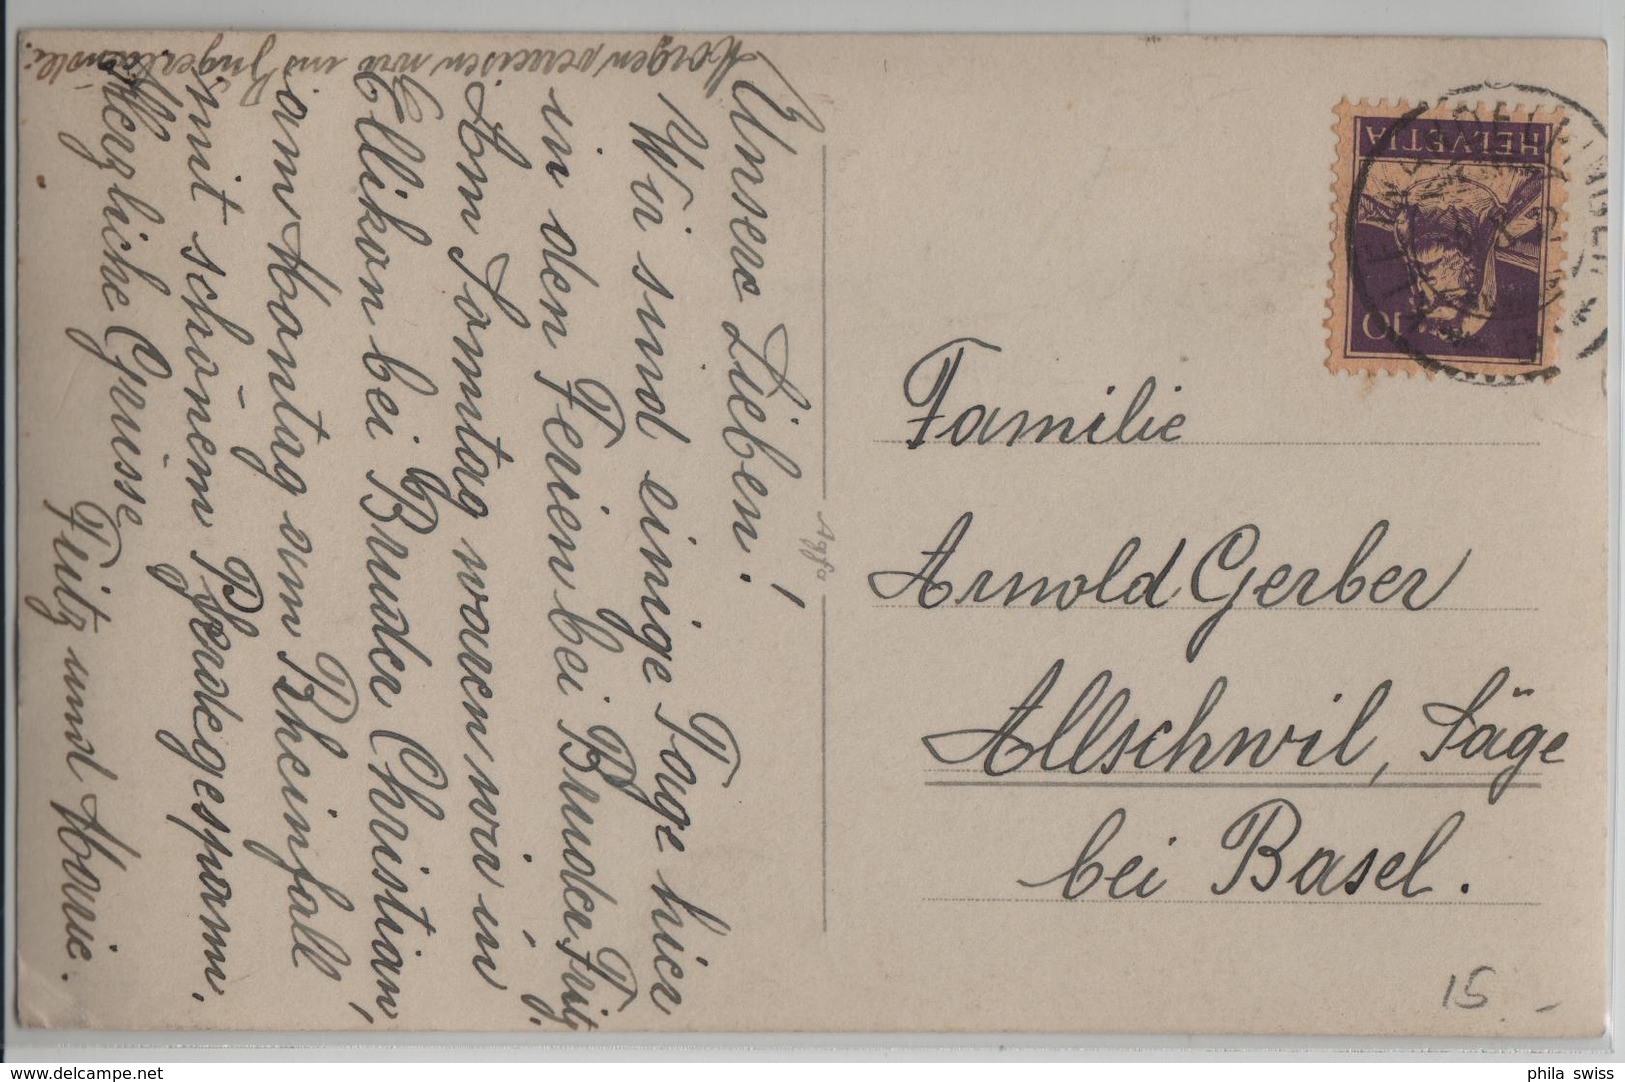 Unsere Lieben!
Wir sind einige Tage hier
in den Ferien bei Bruder Fritz.
Am Sonntag waren wir in
Ellikon bei Bruder Christian,
am Montag am Rheinfall
mit schönem Pferdegespann.
Herzliche Grüsse
Fritz und Marie.
Morgen verreisen wir ins
Agfa
HELVETIA
10
Familie
Arnold Gerber
Allschwil, Säge
bei Basel.
15.-
www.delcampe.net
phila swiss